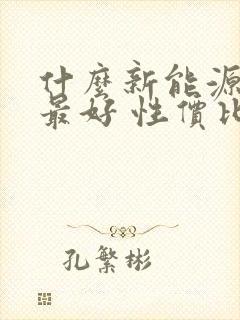 什麼新能源
最好性價比
孔繁彬